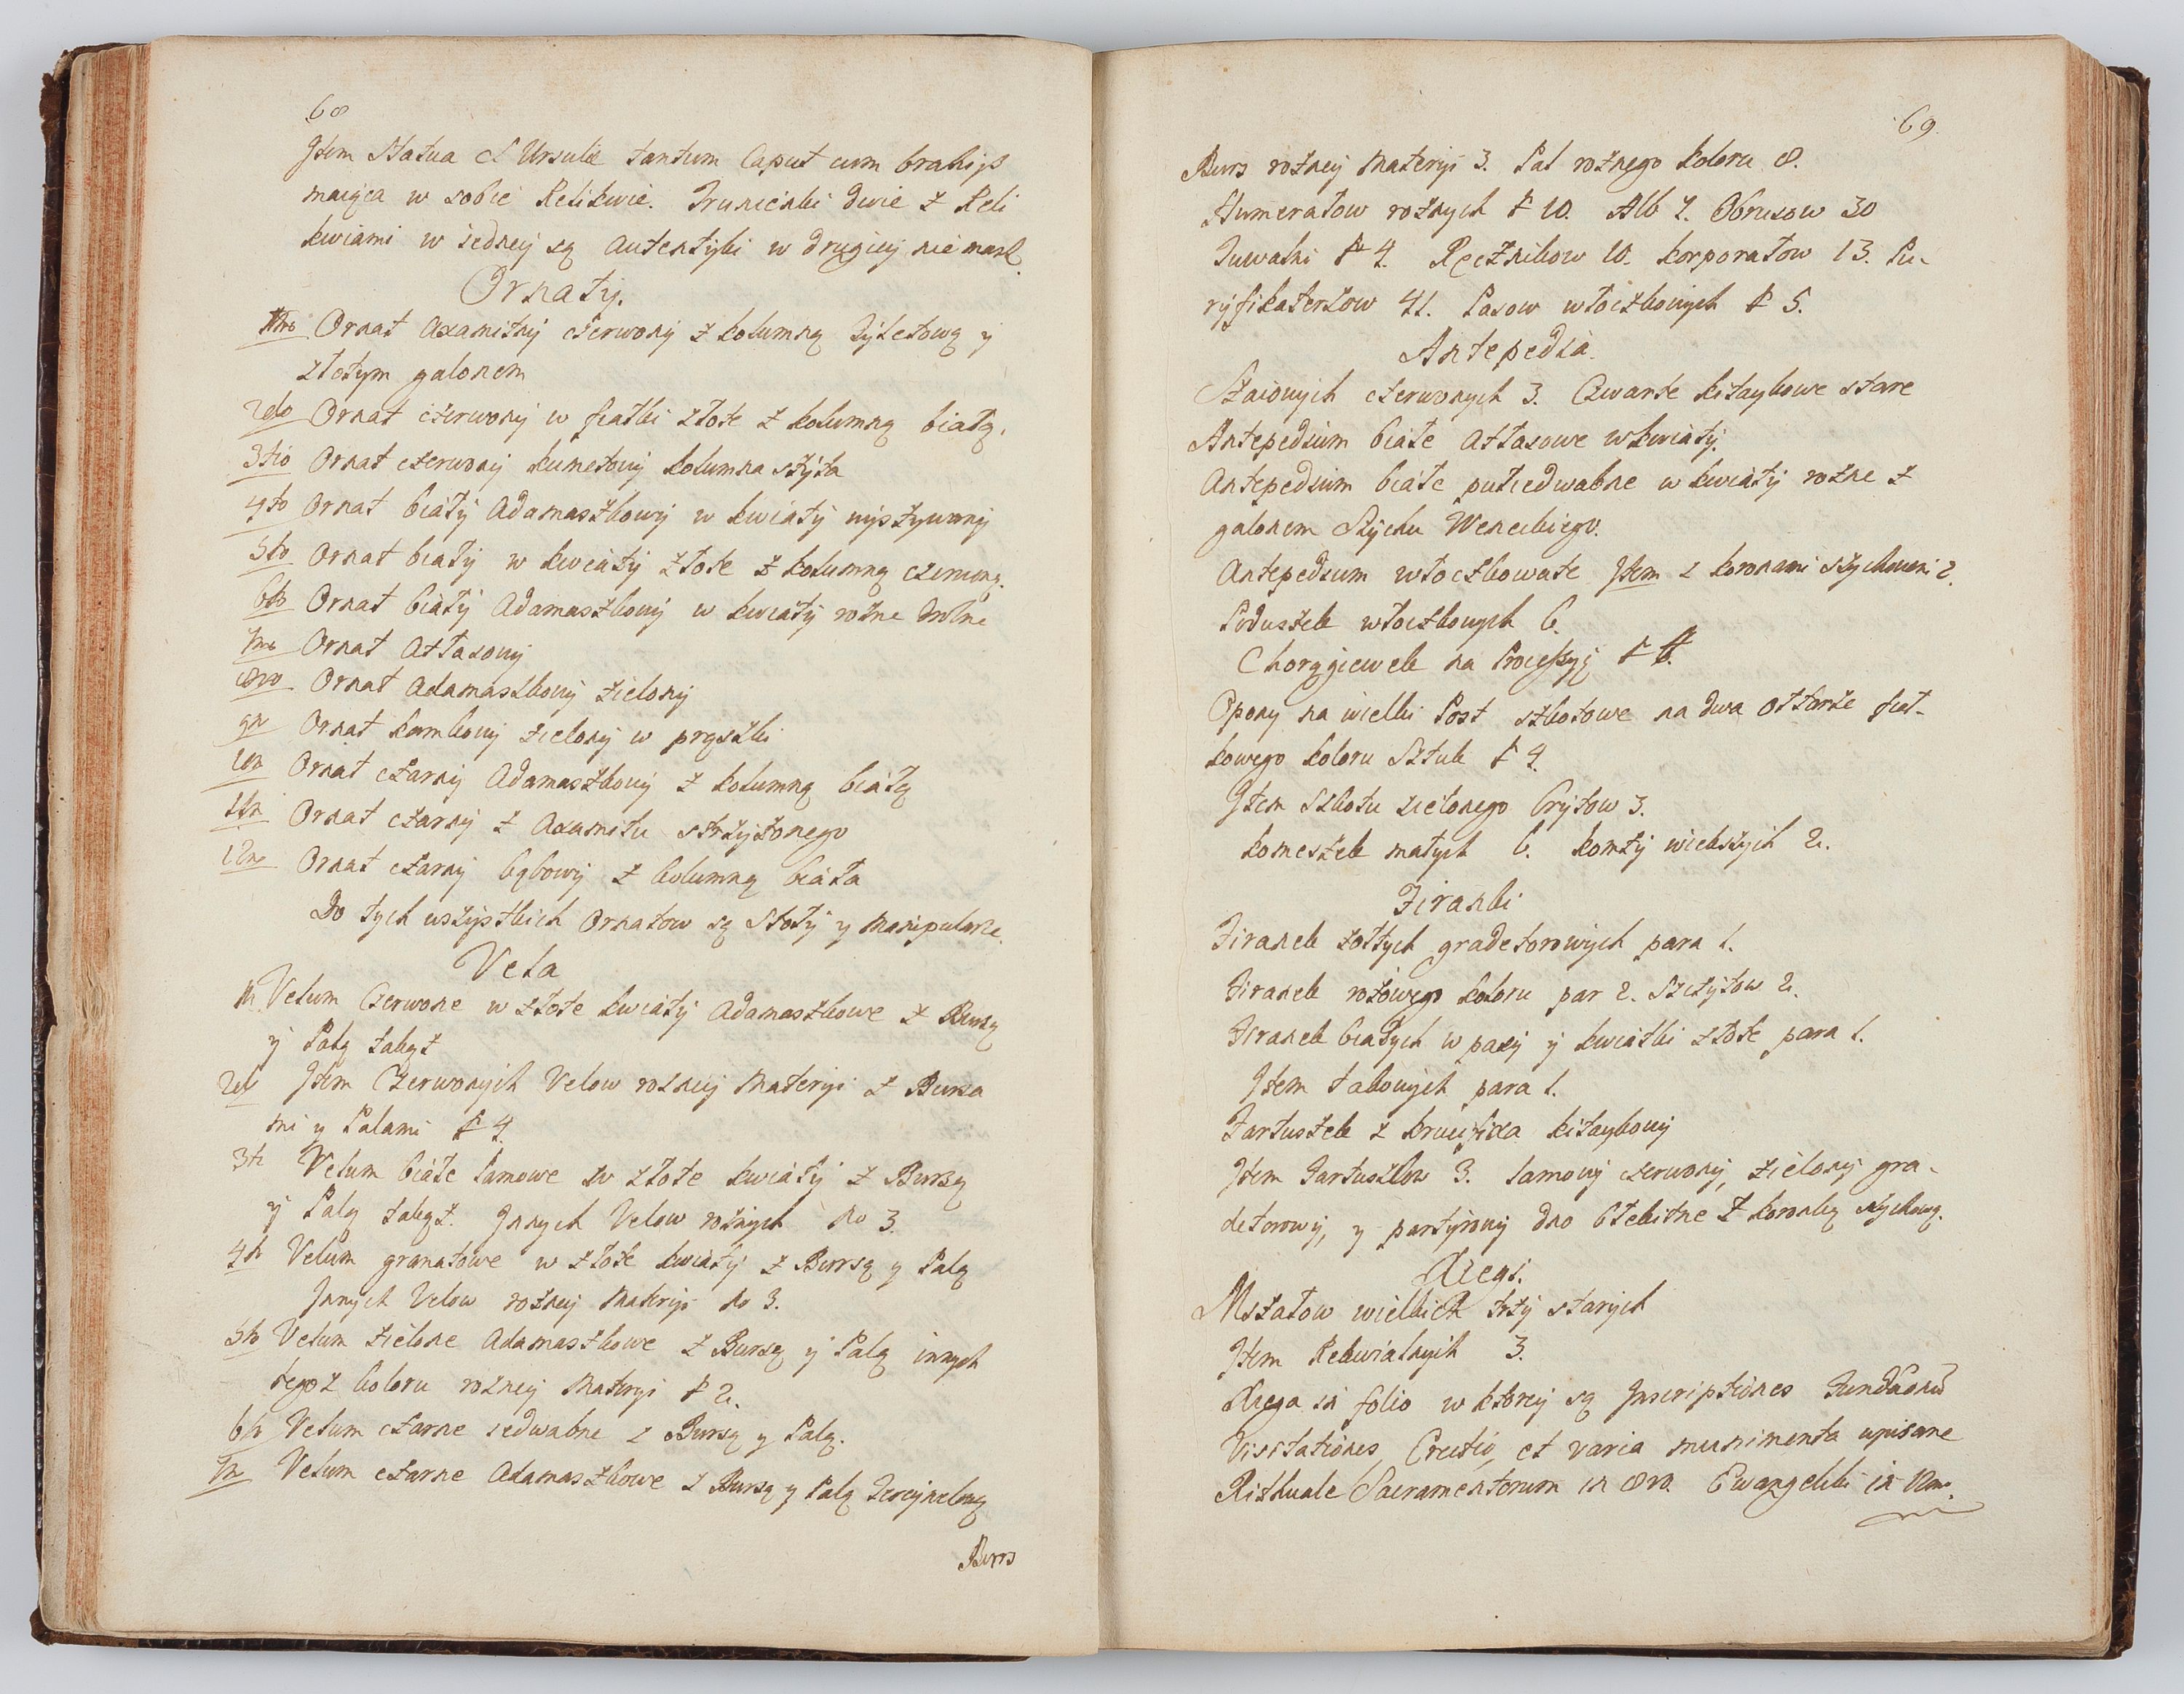 68
Item Statua S Ursulæ tantum Caput cum brahijs
maiąca w sobie Relikwie. Trunienki dwie z Reli
kwiami w iedney są autentyki w drugiey nie masz.
Ornaty.
1mo Ornat axamitny czerwony z kolumną tyletową y
złotym galonem
2do Ornat czerwony w kwiatki złote z kolumną białą.
3tio Ornat czerwony kumetowy kolumna szyta
4to Ornat biały Adamaszkowy w kwiaty wyszywany
5to Ornat biały w kwiaty złote z kolumną czerwoną.
6to Ornat biały Adamaszkowy w kwiaty rożne
7mo Ornat Atłasowy
8vo Ornat Adamaszkowy zielony
9n Ornat kamkowy zielony w prąszki
10n Ornat czarny Adamaszkowy z kolumną białą
11n Ornat czarny z Axamitu strzyżonego
12no Ornat czarny bąkowy z kolumną biała
Do tych wszystkich Ornatow są Stoły y Manipularze.
Vela
1n Velum Czerwone w złote kwiaty Adamaszkowe z Bursą
y Palą takąż
2do Item Czerwonych Velow rożney Materyi z Bursa
mi y Palami N 4.
3ti Velum białe lamowe w złote kwiaty z Bursą
y Palą takąż. Jnnych Velow rożnych No 3.
4to Velum granatowe w złote kwiaty z Bursą y Palą
Jnnych Velow rożney Materyi No 3.
5to Velum zielone Adamaszkowe z Bursą y Palą innych
tegoż koloru rożney Materyi N 2.
6to Velum czarne iedwabne z Bursą y Palą.
7n Velum czarne Adamaszkowe z Bursą y Palą
Burs
69.
Burs rożney Materyi 3. Pal rożnego koloru 8.
Humerałow rożnych N 10. Alb 7. Obrusow 30
Tuwalni N 4. Ręcznikow 10. Korporałow 13. Pu-
ryfikaterzow 41. Pasow włoczkowych N 5.
Antepedia.
Szaiowych czerwonych 3. Czwarte kitaykowe stare
Antepedium białe Atłasowe w kwiaty.
Antepedium białe pułiedwabne w kwiaty rożne z
galonem Szychu Weneckiego.
Antepedium włoczkowate Item z koronami szychowemi 2.
Poduszek włoczkowych 6.
Chorągiewek na Processyą N 6.
Opony na wielki Post szkotowe na dwa ołtarze fiał-
kowego koloru Sztuk N 4.
Item Szkotu zielonego brytow 3.
Komeszek małych 6. Komży większych 2.
Firanki
Firanek żołtych gradetorowych para 1.
Firanek rożowego koloru par 2. Szczytow 2.
Firanek białych w pasy y kwiatki złote para 1.
Item takowych para 1.
Fartuszek z krucifixa kitaykowy
Item Fartuszkow 3. lamowy czerwony, zielony gra-
detorowy, y partyrowy dno błekitne z koronką szychową.
Xięgi.
Mszałow wielkich trzy starych
Item Rekwialnych 3.
Xięga in folio w ktorey są Inscriptiones Fundaonu
Visitationes, Erectio, et varia munimenta wpisane
Rithuale Sacramentorum in 8vo. Ewangeliki in 12mo.